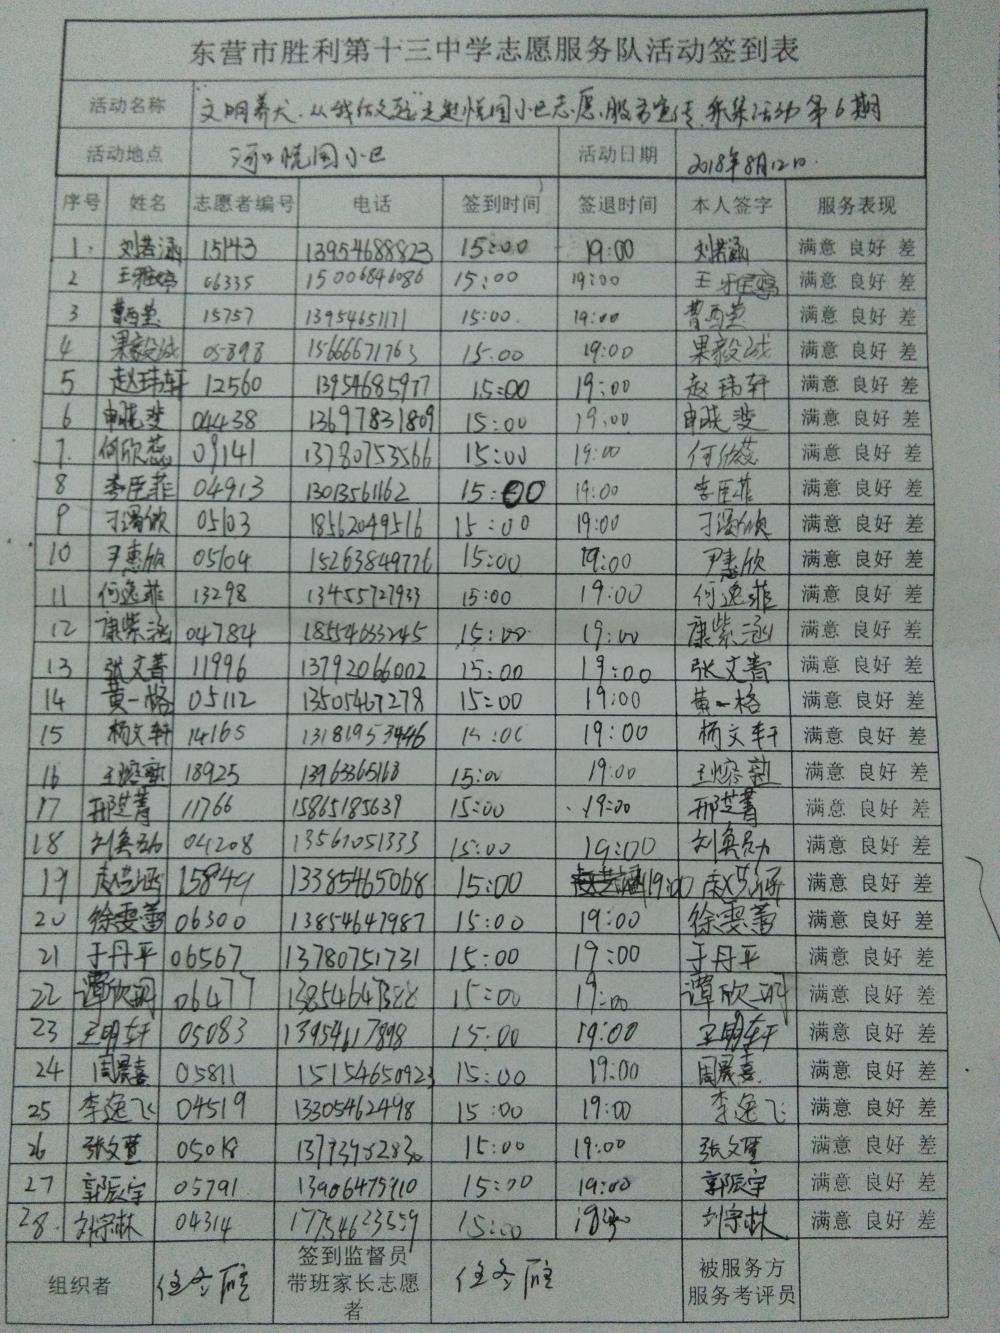 东营市胜利第十三中学志愿服务队活动签到表
活动名称 "文明养犬,从我做文起"走进悦园小区志愿服务宣传、采集活动第6期
活动地点 河口悦园小区 活动日期 2018年8月12日.
序号 姓名 志愿者编号 电话 签到时间 签退时间 本人签字 服务表现
1. 刘若涵 15143 13954688823 15:00 19:00 刘若涵 满意 良好 差
2 王雅婷 06335 15006846086 15:00 19:00 王雅婷 满意 良好 差
3 曹西莹 15757 13954651171 15:00 19:00 曹西莹 满意 良好 差
4 果毅诚 05898 15666671763 15:00 19:00 果毅诚 满意 良好 差
5 赵玮轩 12560 13954685977 15:00 19:00 赵玮轩 满意 良好 差
6 04438 13697831809 15:00 19:00 满意 良好 差
7. 何欣蕊 09141 13780753566 15:00 19:00 何欣蕊 满意 良好 差
8 李臣菲 04913 13013561162 15:00 19:00 李臣菲 满意 良好 差
9 05103 18562049516 15:00 19:00 满意 良好 差
10 尹惠欣 05104 15263849776 15:00 19:00 尹惠欣 满意 良好 差
11 何逸菲 13298 13455727933 15:00 19:00 何逸菲 满意 良好 差
12 康紫涵 04784 18554633245 15:00 19:00 康紫涵 满意 良好 差
13 张文菁 11996 13792066002 15:00 19:00 张文菁 满意 良好 差
14 黄一格 05112 13505467278 15:00 19:00 黄一格 满意 良好 差
15 杨文轩 14165 13181953446 15:00 19:00 杨文轩 满意 良好 差
16 18925 13963365168 15:00 19:00 满意 良好 差
17 邢芝菁 11766 15865185639 15:00 19:00 邢芝菁 满意 良好 差
18 刘奂勋 04208 13561051333 15:00 19:00 满意 良好 差
19 15849 13385465068 15:00 19:00 满意 良好 差
20 徐雯蕾 06300 13854647987 15:00 19:00 徐雯蕾 满意 良好 差
21 于丹平 06567 13780751731 15:00 19:00 于丹平 满意 良好 差
22 谭欣玥 06477 15:00 19:00 谭欣玥 满意 良好 差
23 王明轩 05083 13954617898 15:00 19:00 王明轩 满意 良好 差
24 周晨熹 05811 15154650923 15:00 19:00 周晨熹 满意 良好 差
25 李逸飞 04519 13305462498 15:00 19:00 李逸飞 满意 良好 差
26 张文萱 05018 15:00 19:00 张文萱 满意 良好 差
27 郭辰宇 05791 13906475910 15:00 19:00 郭辰宇 满意 良好 差
28. 刘宗林 04314 17754623559 15:00 刘宗林 满意 良好 差
组织者 签到监督员
带班家长志愿
者 被服务方
服务考评员